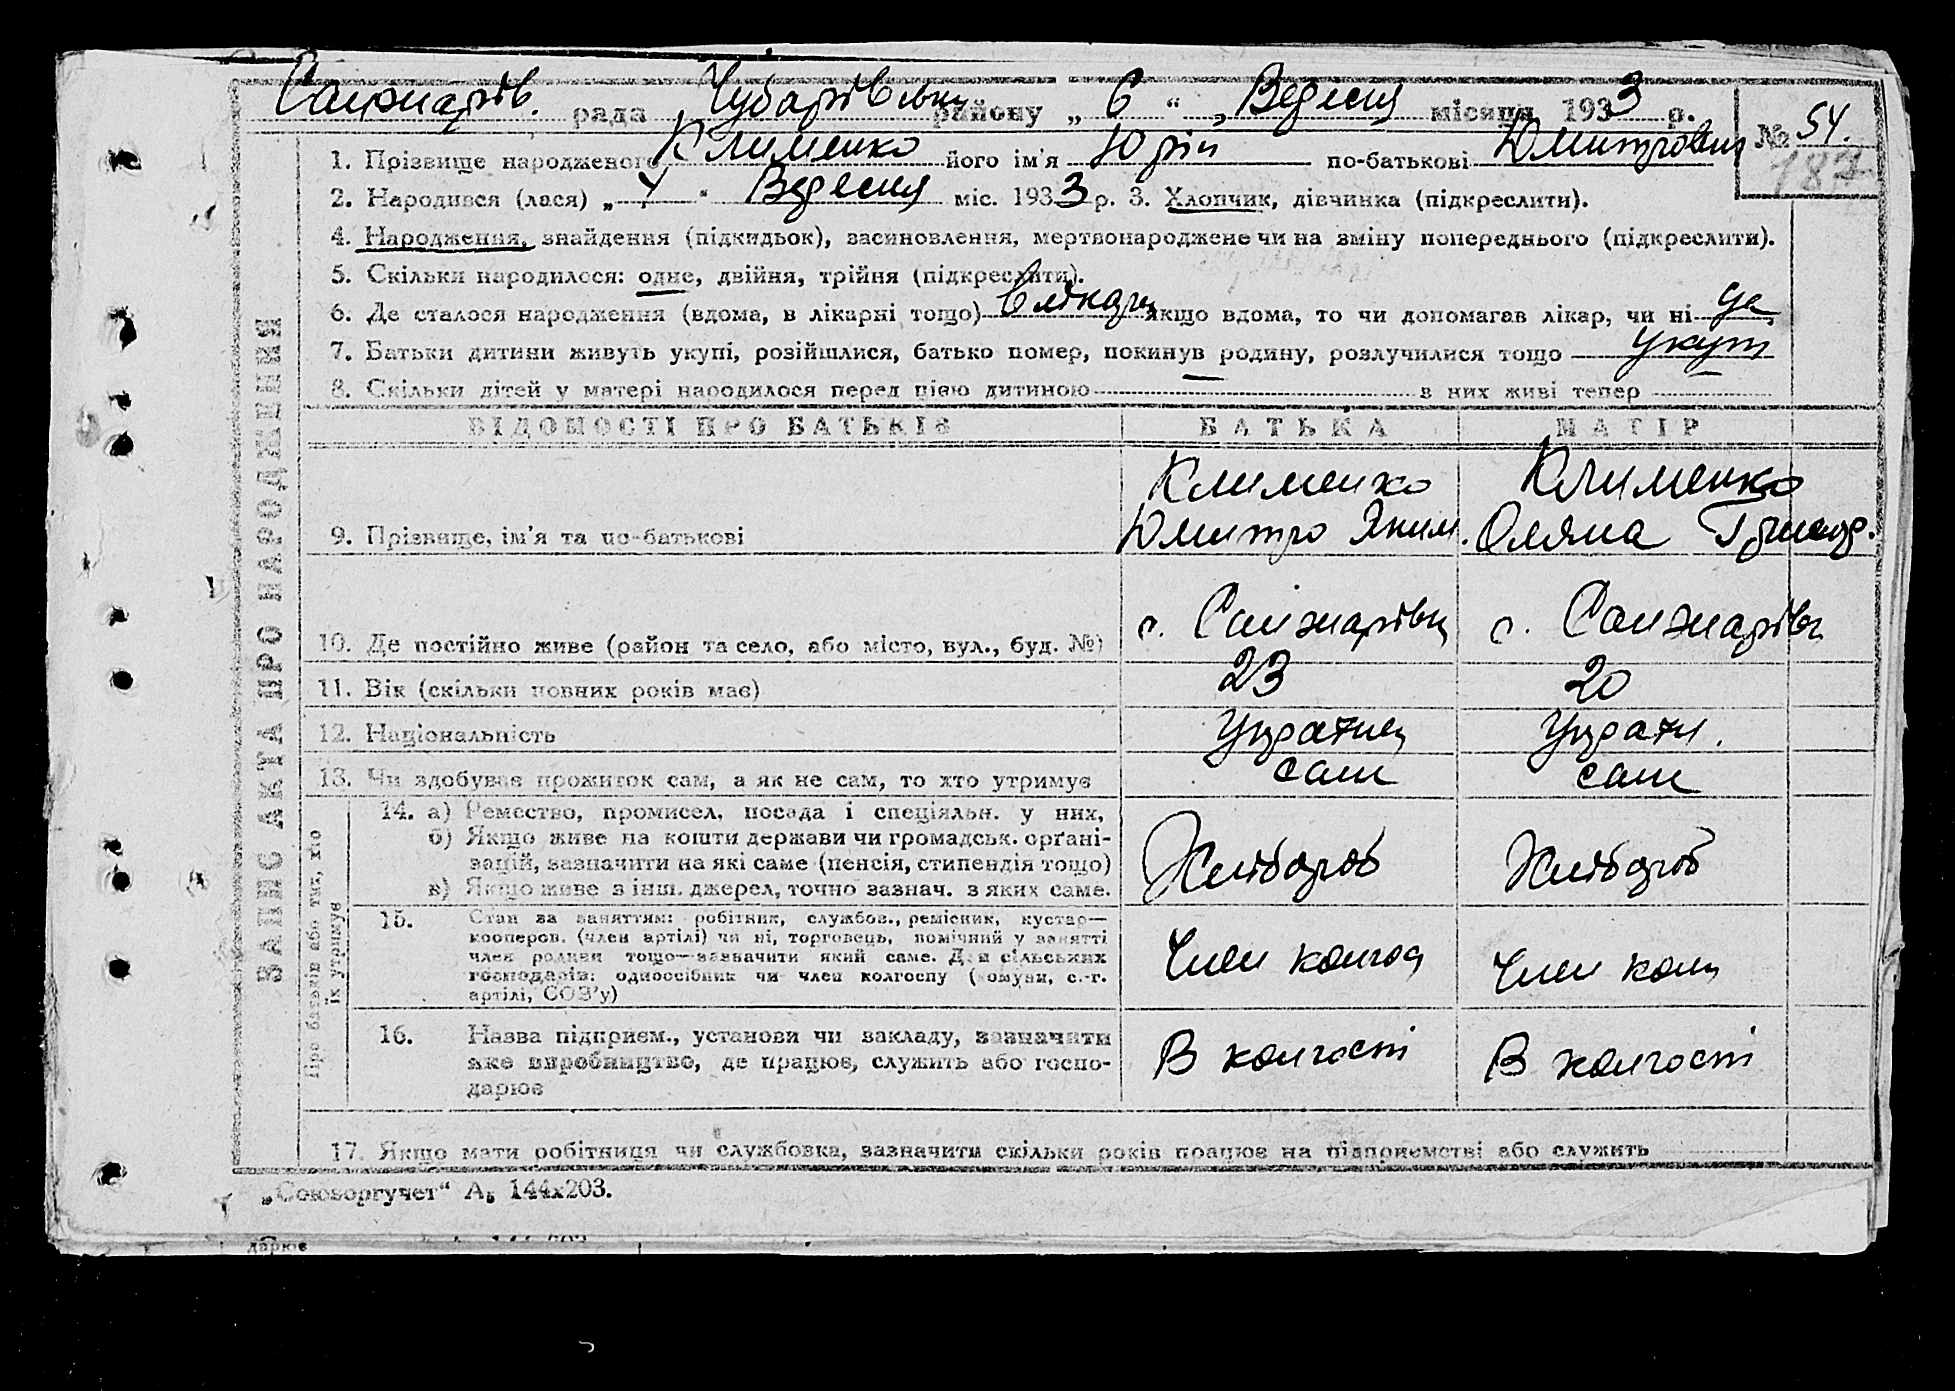 Санжарів. рада Чубарівськ району „ 6 “ „ Вересня місяця 1933 р.
№ 54.
187
1. Прізвище народженого Клименко його ім'я Юрій по-батькові Дмитрович
2. Народився (лася) „ 4 “ Вересня міс. 1933 р. 3. Хлопчик, дівчинка (підкреслити).
4. Народження, знайдення (підкидьок), засиновлення, мертвонароджене чи на зміну попереднього (підкреслити).
5. Скільки народилося: одне, двійня, трійня (підкреслити).
6. Де сталося народження (вдома, в лікарні тощо) якщо вдома, то чи допомагав лікар, чи ні да
7. Батьки дитини живуть укупі, розійшлися, батько помер, покинув родину, розлучилися тощо укуп
8. Скільки дітей у матері народилося перед цією дитиною з них живі тепер
ЗАПИС АКТА ПРО НАРОДЖЕННЯ
ВІДОМОСТІ ПРО БАТЬКІВ БАТЬКА МАТІР
Клименко Клименко
9. Прізвище, ім'я та по-батькові Дмитро Яким. Оляна Григор.
10. Де постійно живе (район та село, або місто, вул., буд. №) с. Санжарівц с. Санжарівц
11. Вік (скільки повних років має) 23 20
12. Національність Українец Україн.
13. Чи здобуває прожиток сам, а як не сам, то хто утримує сам сам
Про батьків або тих, хто їх утримує
14. а) Ремество, промисел, посада і спеціяльн. у них,
б) Якщо живе на кошти держави чи громадськ. орґані-
зацій, зазначити на які саме (пенсія, стипендія тощо) Хлібороб Хлібороб
в) Якщо живе з інш. джерел, точно зазнач. з яких саме.
15. Стан за заняттям: робітник, службов., ремісник, кустар—
кооперов. (член артілі) чи ні, торговець, помічний у занятті
член родини тощо—зазначити який саме. Для сільських
господарів: одноосібник чи член колгоспу (комуни, с.-г.
артілі, СОЗ'у) Член колгосп Член колг
16. Назва підприєм., установи чи закладу, зазначити
яке виробництво, де працює, служить або госпо-
дарює В колгоспі В колгоспі
17. Якщо мати робітниця чи службовка, зазначити скільки років працює на підприємстві або служить
„Союзоргучет“ А5 144х203.
дарює